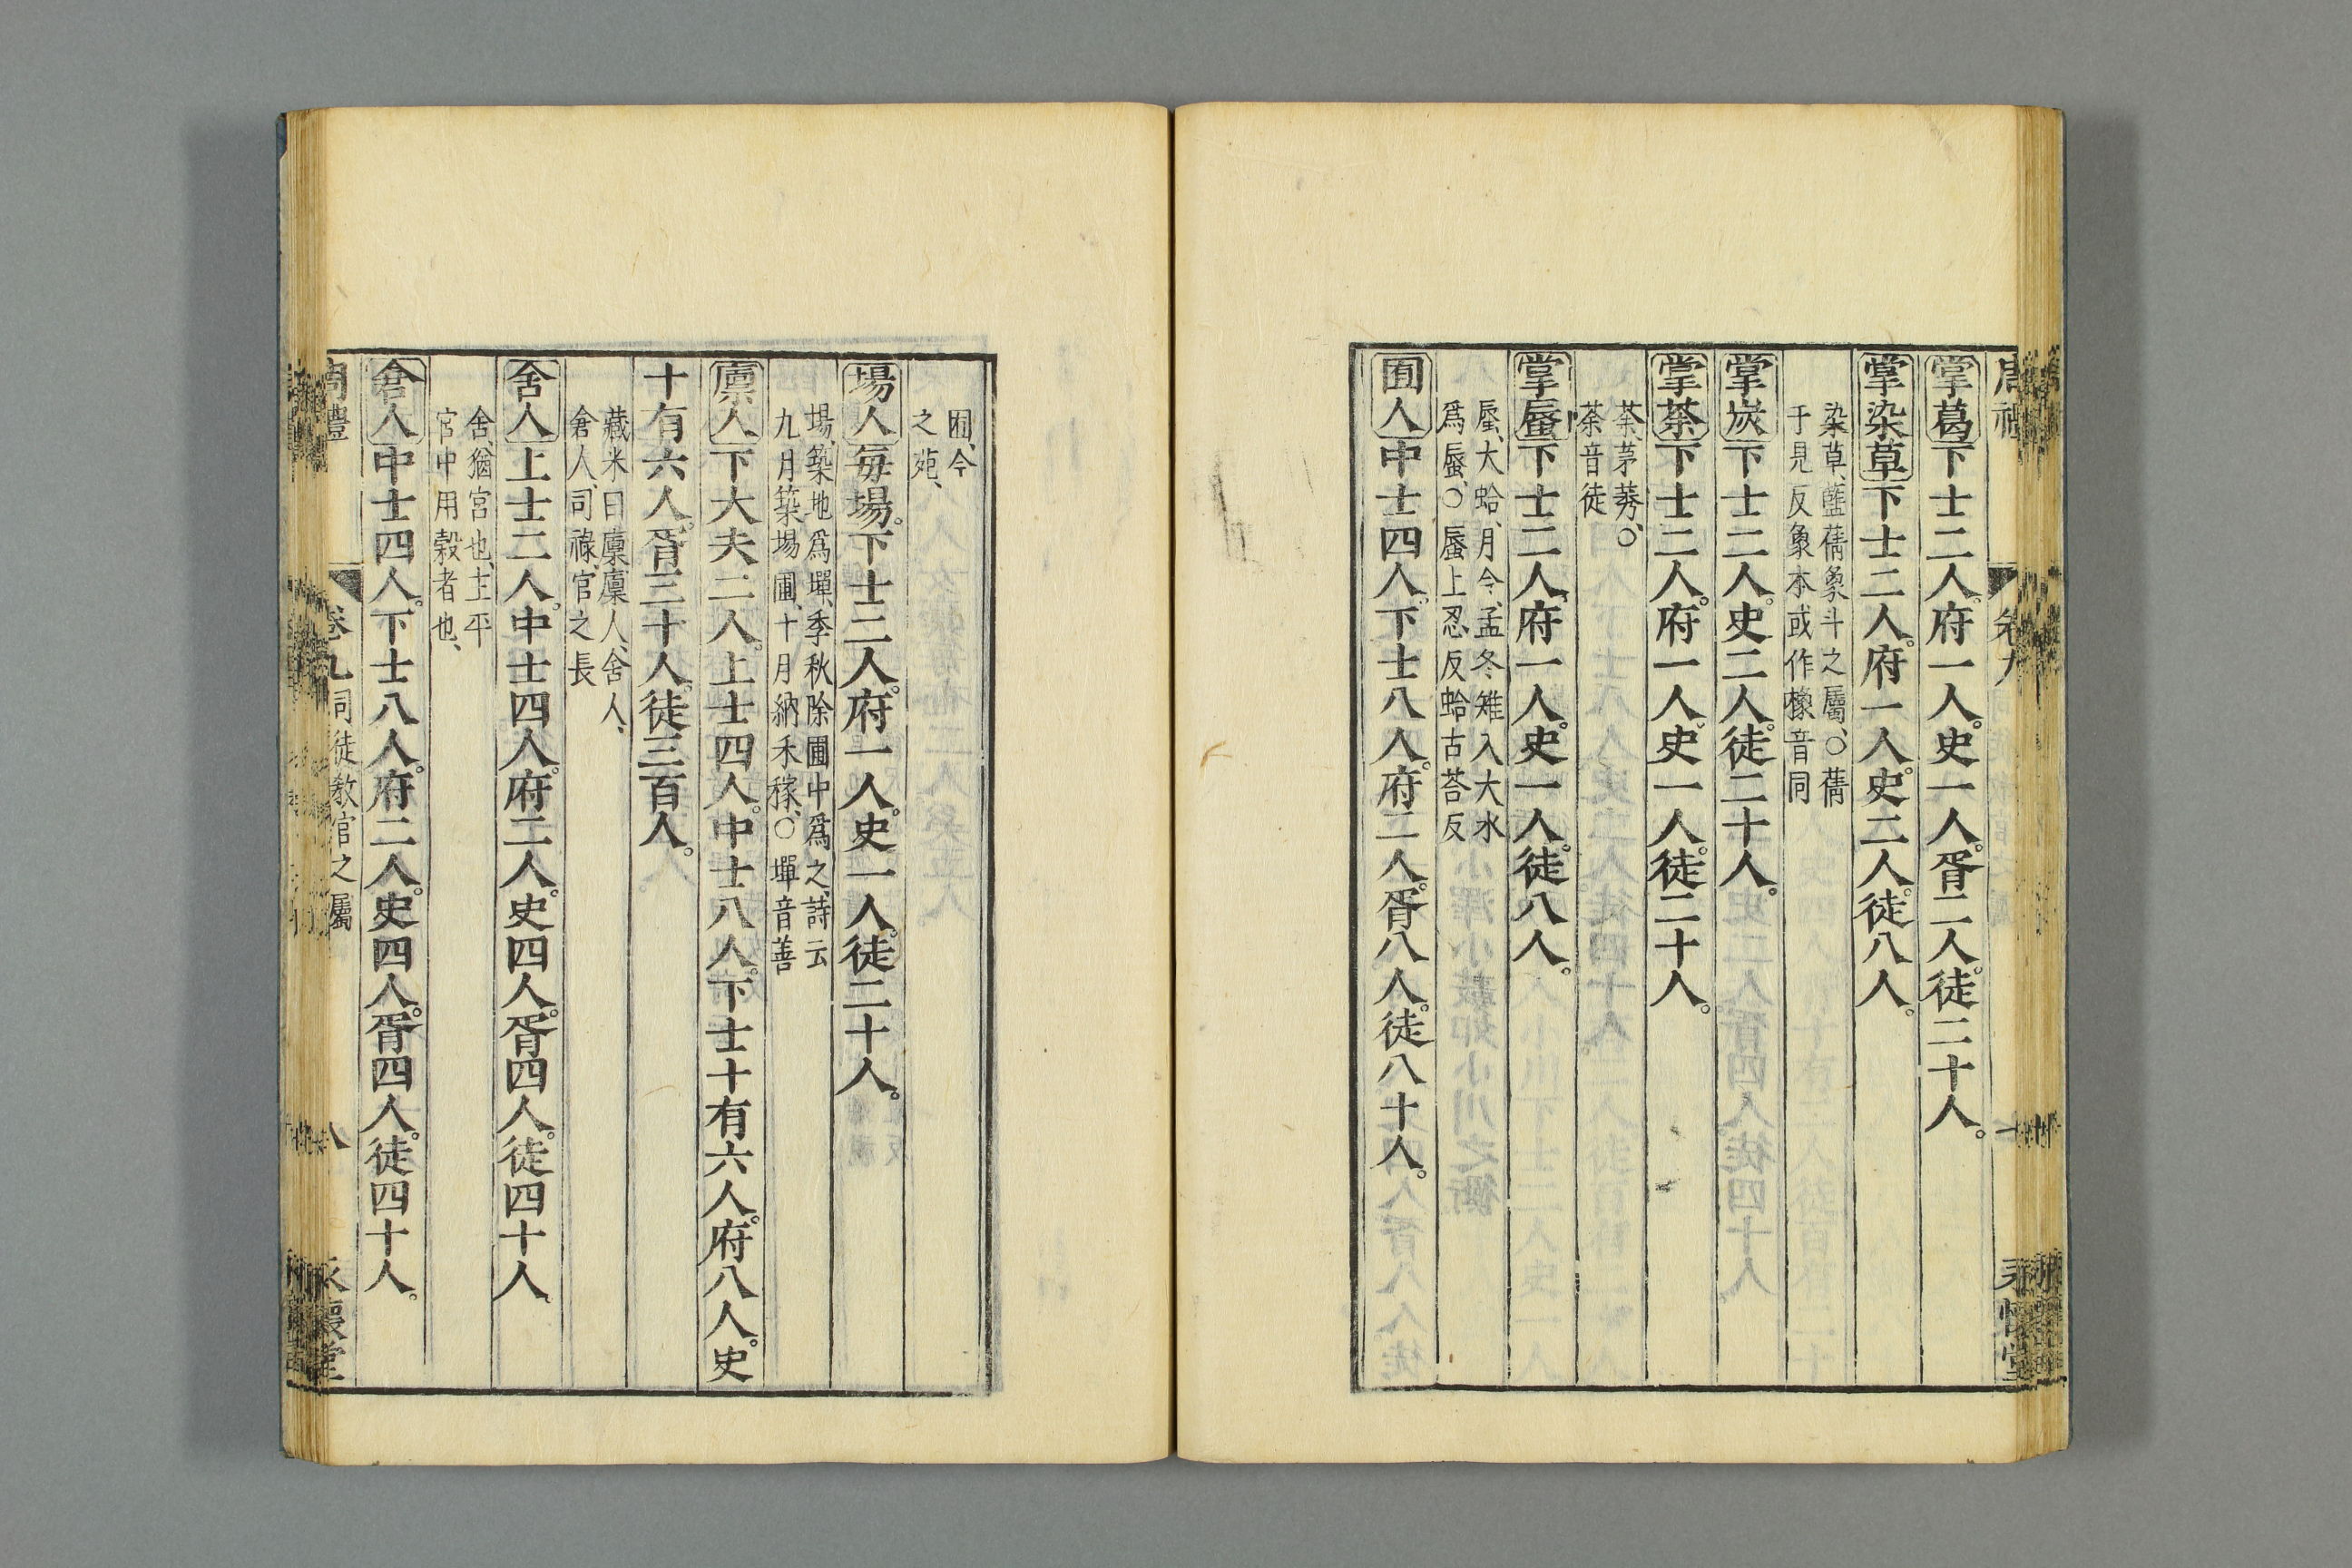 掌葛下士二人。府一人。史一人。胥二人。徒二十人。
掌染草下士二人。府一人。史二人。徒八人。
染草、藍蒨象斗之屬、○蒨
于見反象本或作橡音同
掌炭下士二人。史二人。徒二十人。
掌荼下士二人。府一人。史一人。徒二十人。
荼、茅莠、○
荼音徒
掌蜃下士二人。府一人。史一人。徒八人。
蜃、大蛤、月令、孟冬雉入大水
爲蜃、○蜃上忍反蛤古荅反
囿人中士四人。下士八人。府二人。胥八人。徒八十人。
囿、今
之苑、
場人每場。下士二人。府一人。史一人。徒二十人。
場、築地爲墠、季秋除圃中爲之、詩云
九月築場圃、十月納禾稼、○墠音善
廩人下大夫二人。上士四人。中士八人。下士十有六人。府八人。史
十有六人。胥三十人。徒三百人。
藏米曰廩廩人、舍人、
倉人、司祿、官之長
舍人上士二人。中士四人。府二人。史四人。胥四人。徒四十人
舍、猶宮也、主平
宮中用穀者也、
倉人中士四人。下士八人。府二人。史四人。胥四人。徒四十人。
周禮 卷九 司徒敎官之屬 八 永懷堂